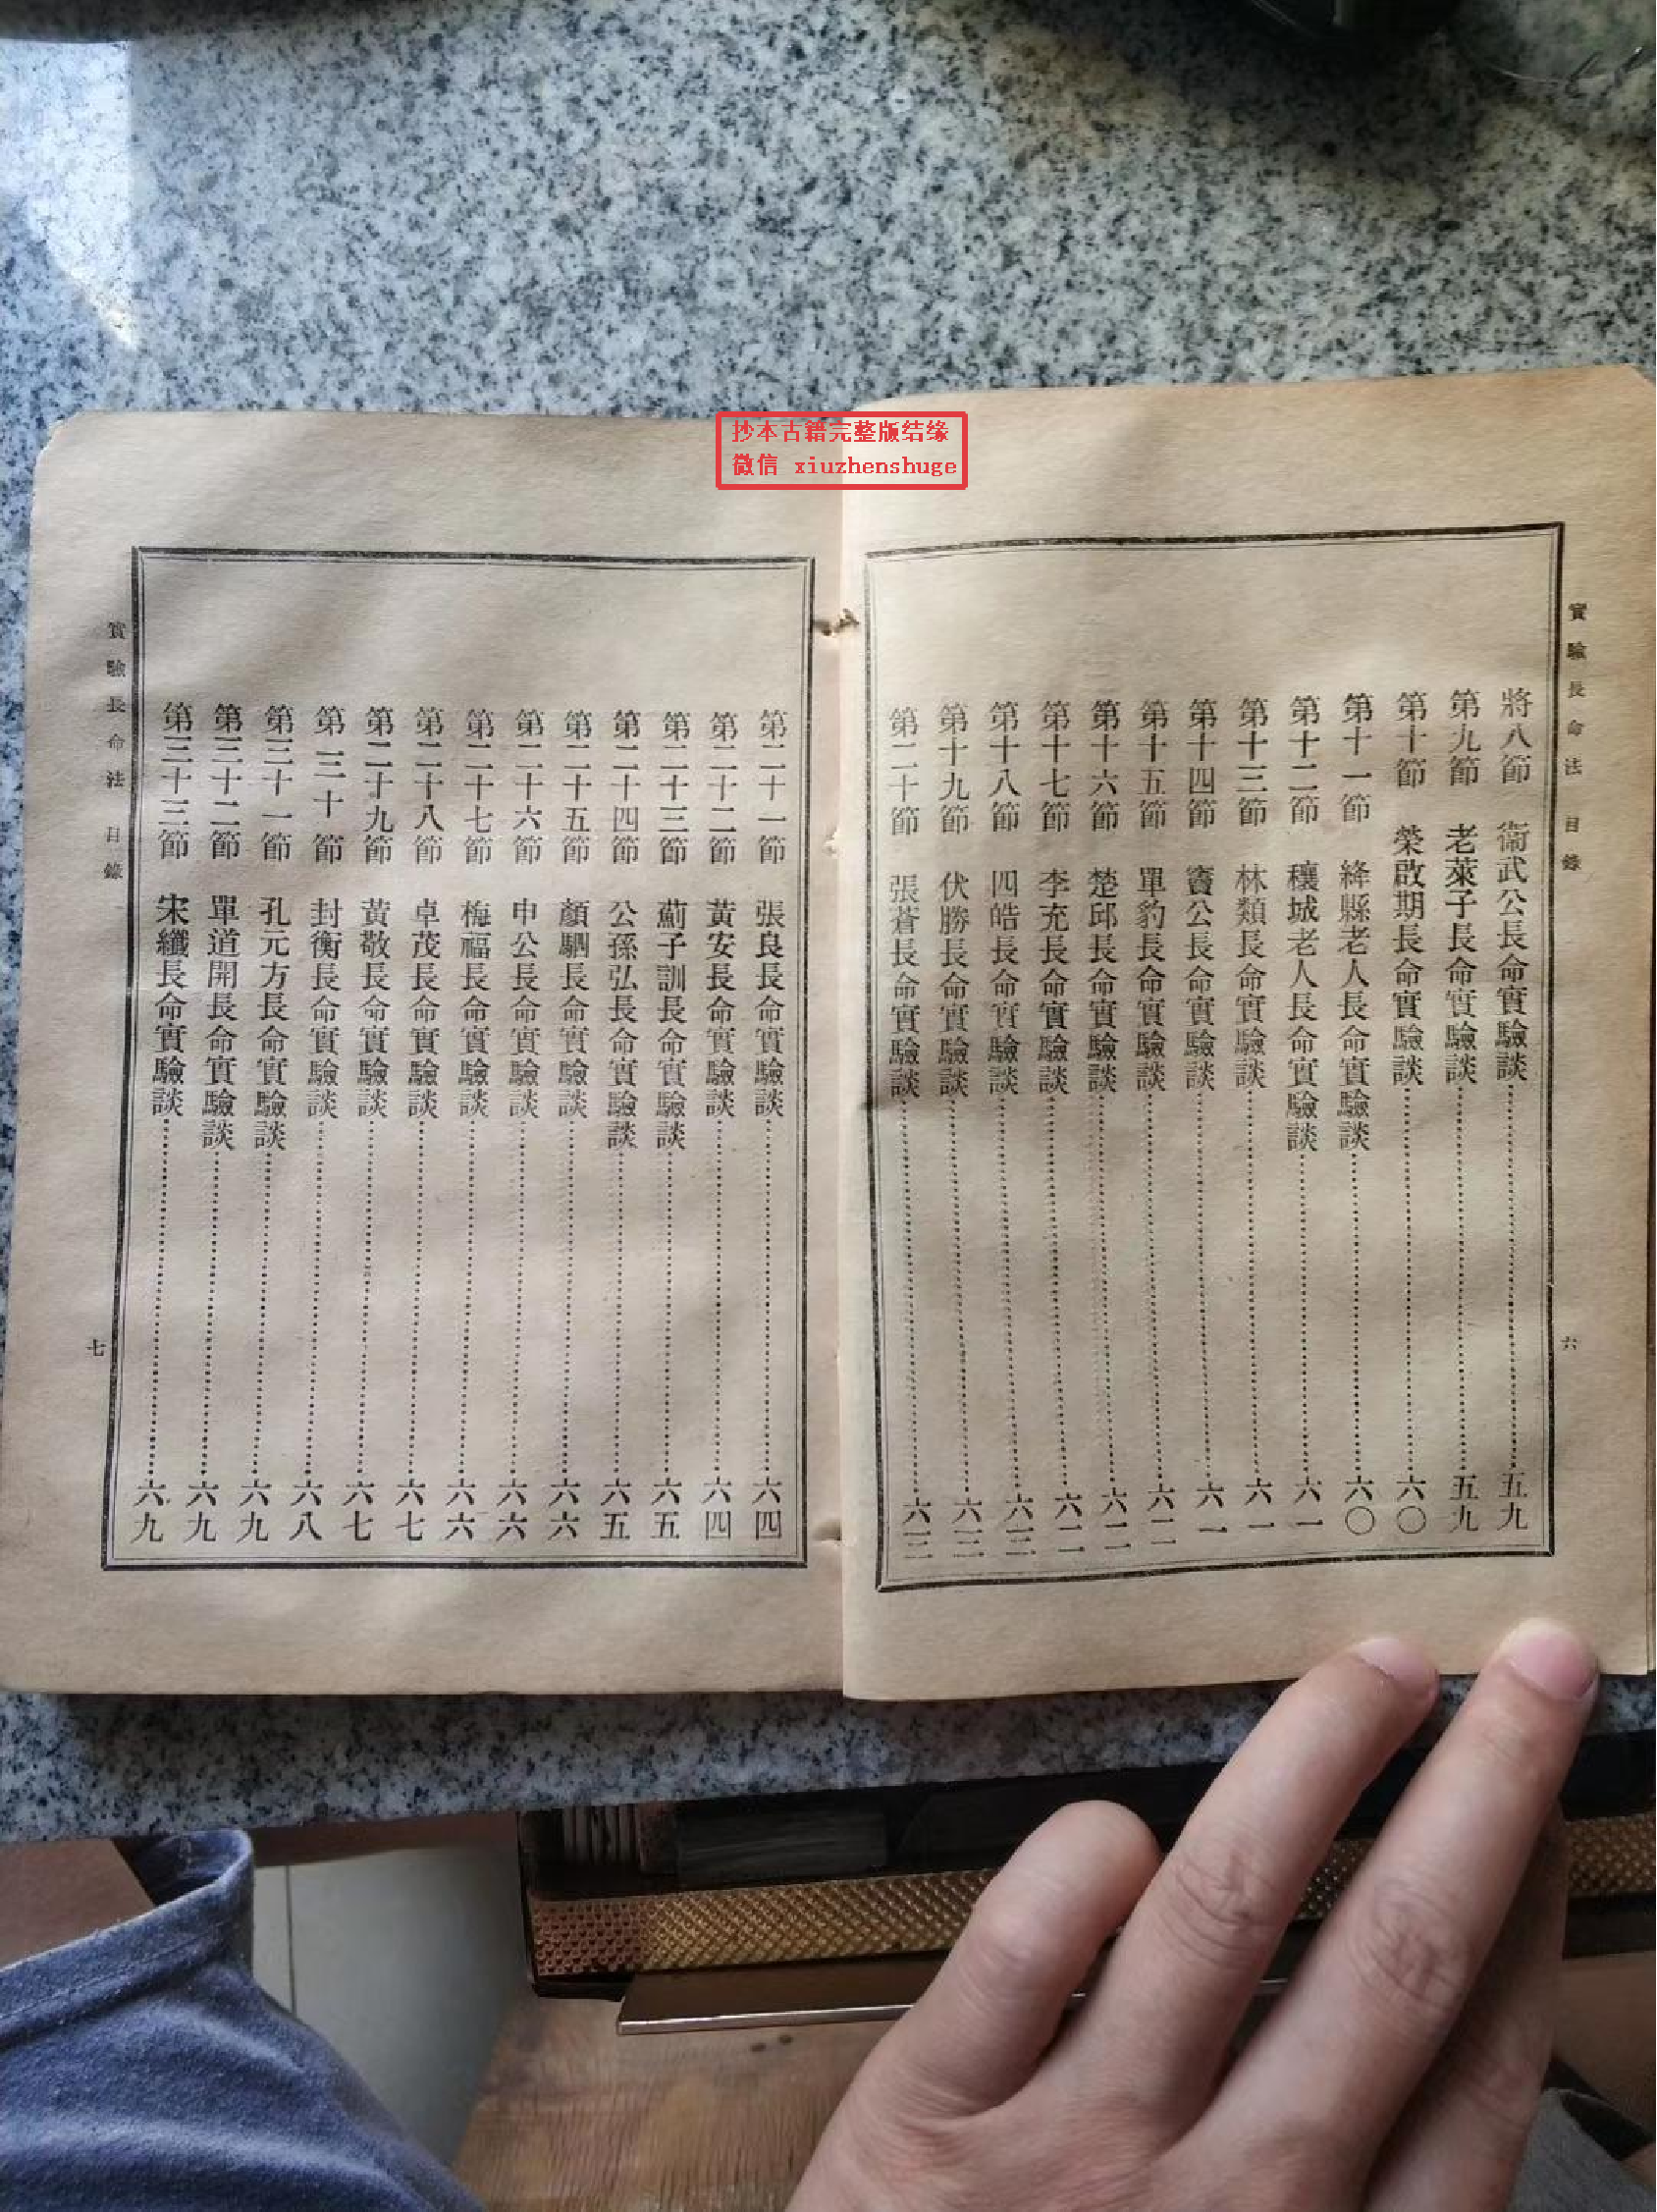 抄本古籍完整版结缘
微信 xiuzhenshuge
實驗長命法 目錄
六
將八節 衞武公長命實驗談 五九
第九節 老萊子長命實驗談 五九
第十節 榮啟期長命實驗談 六〇
第十一節 絳縣老人長命實驗談 六〇
第十二節 穰城老人長命實驗談 六一
第十三節 林類長命實驗談 六一
第十四節 竇公長命實驗談 六一
第十五節 單豹長命實驗談 六二
第十六節 楚邱長命實驗談 六二
第十七節 李充長命實驗談 六二
第十八節 四皓長命實驗談 六三
第十九節 伏勝長命實驗談 六三
第二十節 張蒼長命實驗談 六三
第二十一節 張良長命實驗談 六四
第二十二節 黃安長命實驗談 六四
第二十三節 薊子訓長命實驗談 六五
第二十四節 公孫弘長命實驗談 六五
第二十五節 顏駟長命實驗談 六六
第二十六節 申公長命實驗談 六六
第二十七節 梅福長命實驗談 六六
第二十八節 卓茂長命實驗談 六七
第二十九節 黃敬長命實驗談 六七
第三十節 封衡長命實驗談 六八
第三十一節 孔元方長命實驗談 六九
第三十二節 單道開長命實驗談 六九
第三十三節 宋纖長命實驗談 六九
實驗長命法 目錄
七